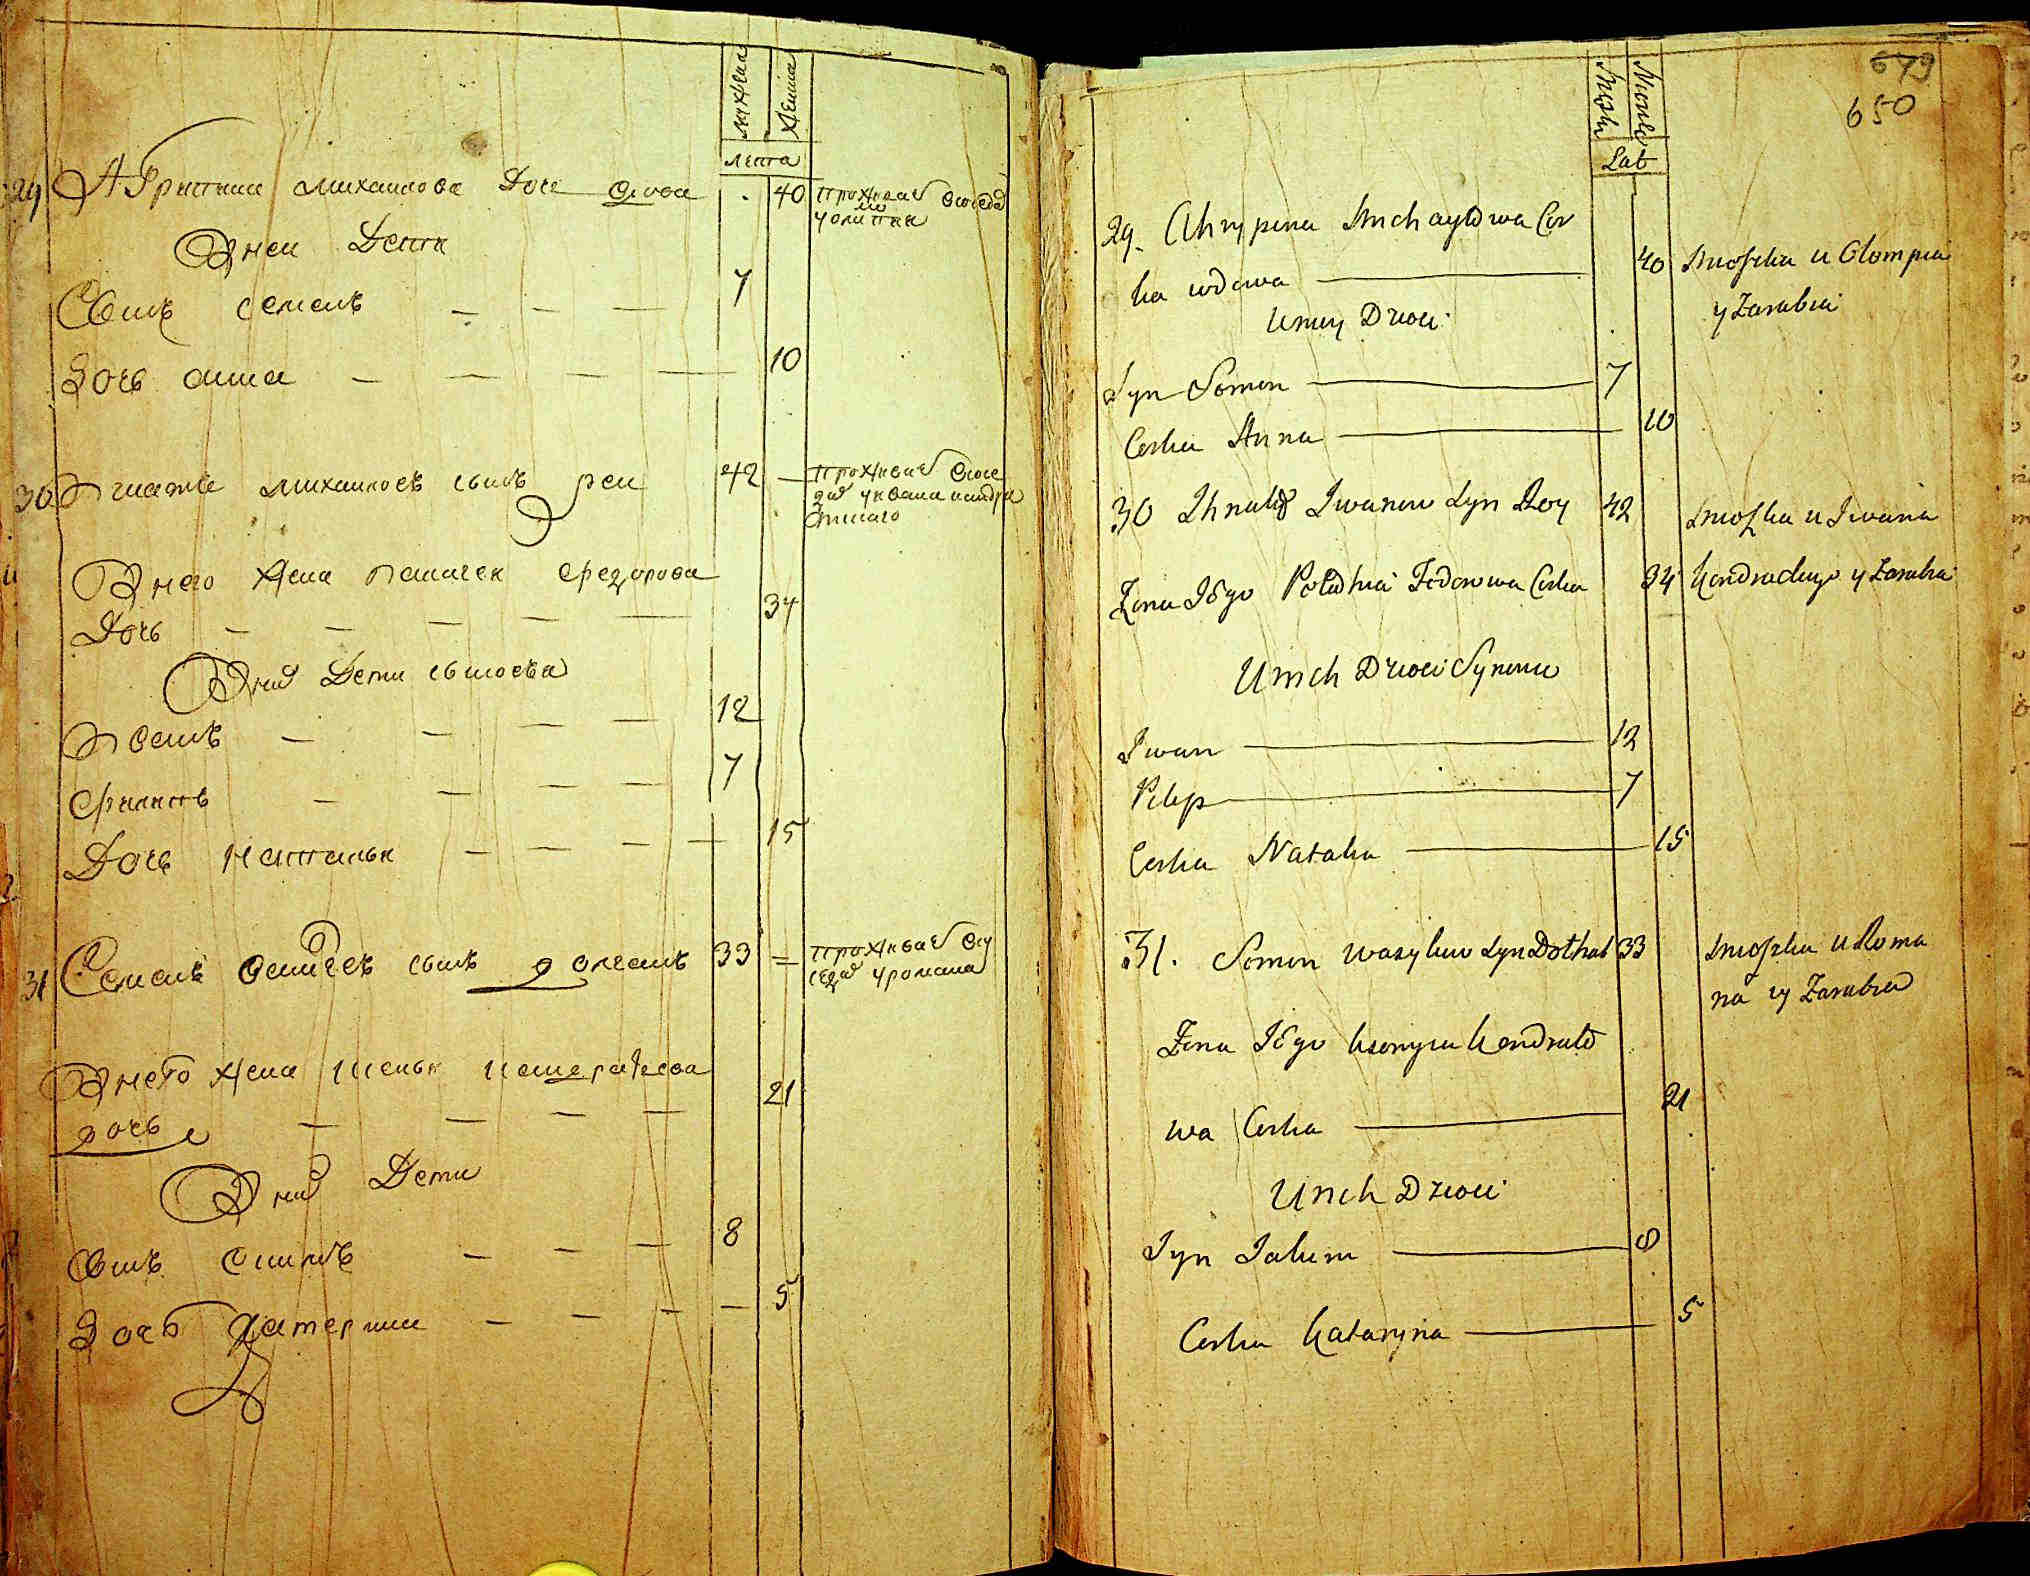 мужеска
женска
лета
29 Агрипина михаилова дочь вдова . 40 проживае сосед
ю уолипии
Унеи Дети
Сынъ семенъ — — — 7
Дочь анна — — — — 10
30 Игнате михаиловъ сынъ реи 42 — проживае сосе
да уивана кондра
Унего жена палагея федорова
Дочь — — — — — 34
Уних Дети сыновья
Иванъ — — — — 12
Филипъ — — — — 7
Дочь наталья — — — — 15
31 Семенъ сынъ 33 — проживае су
седа уромана
Унего жена кондратьева
дочь — — — — 21
Уних Дети
Сынъ — — — 8
Дочь Катерина — — — — 5
679
650
Męska
Lat
29. Ahrypina Michayłowa Cor
ka wdowa 40 Mieszka u Olompia
y Zarabia
Uniey Dzieci
Syn Somon 7
Corka Anna 10
30 Ihnat Iwanow Syn Rey 42 Mieszka u Iwana
Żona Iego Połahia Fedorowa Corka 34 Kondrackiego y Zarabia
Unich Dzieci Synowie
Iwan 12
Pilip 7
Corka Natalia 15
31. Somon Wasylew Syn 33 Mieszka u Roma
na y Zarabia
Żona Iego Ksenyia Kondrato
wa Corka 21
Unich Dzieci
Syn Iakim 8
Corka Kataryna 5